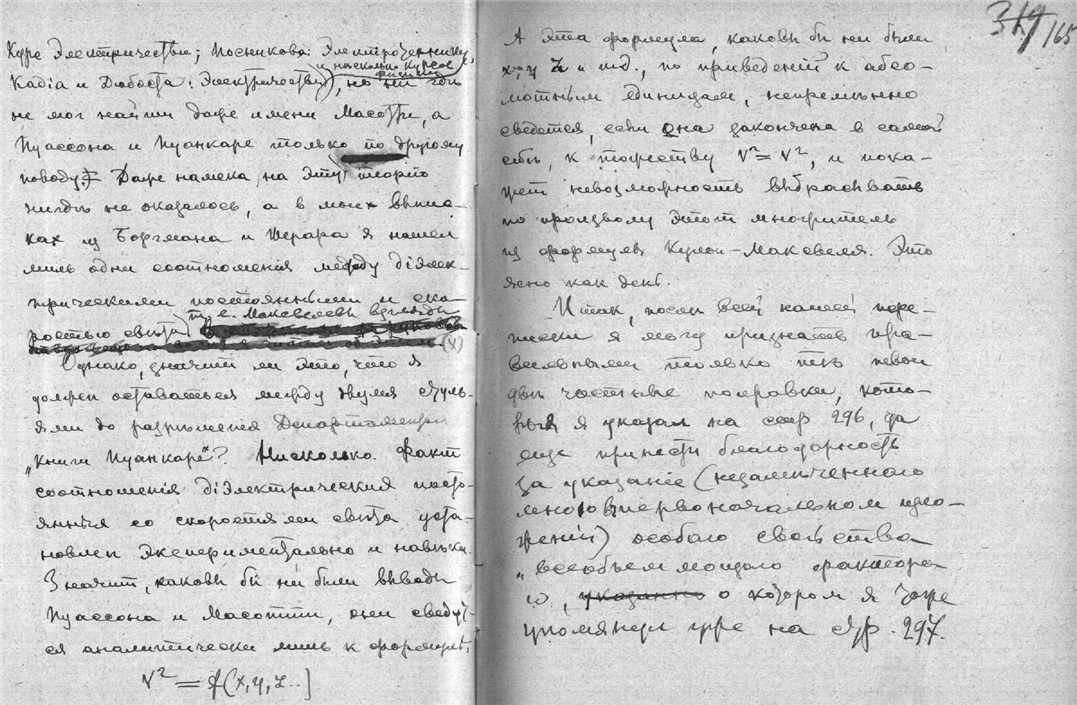 Курс Электричества; Посникова: Электротехнику
и нѣсколько курсов физики
Кадіа и Дюбоста: Электричество), но ни гдѣ
не мог найти даже имени Масотти, а
Пуассона и Пуанкаре только по другому
поводу. Даже намека на эту теорію
нигдѣ не оказалось, а в моих выпис-
ках из Боргмана и Жерара я нашел
лишь одни соотношенія между діэлек-
трическими постоянными и ско-
ростью свѣта, т. е. Максвелевы взгляды
(x)
Однако, значит ли это, что я
должен оставаться между двумя стуль-
ями до разрѣшенія Департаментом
„Книги Пуанкаре"? Нисколько. Факт
соотношенія діэлектрическия посто-
янныя со скоростями свѣта уста-
новлен экспериментально и навѣки.
Значит, каковы бы ни были выводы
Пуассона и Масотти, они сведут-
ся аналитически лишь к формулѣ,
V² = f(x, y, z...]
319/165
А эта формула, каковы бы ни были
x, y z и т.д., по приведеніи к абсо-
лютным единицам, непремѣнно
сведется, если она закончена в самой
себѣ, к тожеству V² = V², и пока-
жет невозможность выбрасывать
по произволу этот множитель
из формулы Кулон-Максвеля. Это
ясно как день.
Итак, послѣ всей нашей пере-
писки я могу признать пра-
вильными только тѣ
двѣ частные поправки, кото-
рыя я указал на стр 296, да
еще принести благодарность
за указаніе (незамѣченного
мною в первоначальном изло-
женіи) особаго свойства
„всеобъемлющаго фактора
ω, указанно о котором я тоже
упомянул уже на стр. 297.